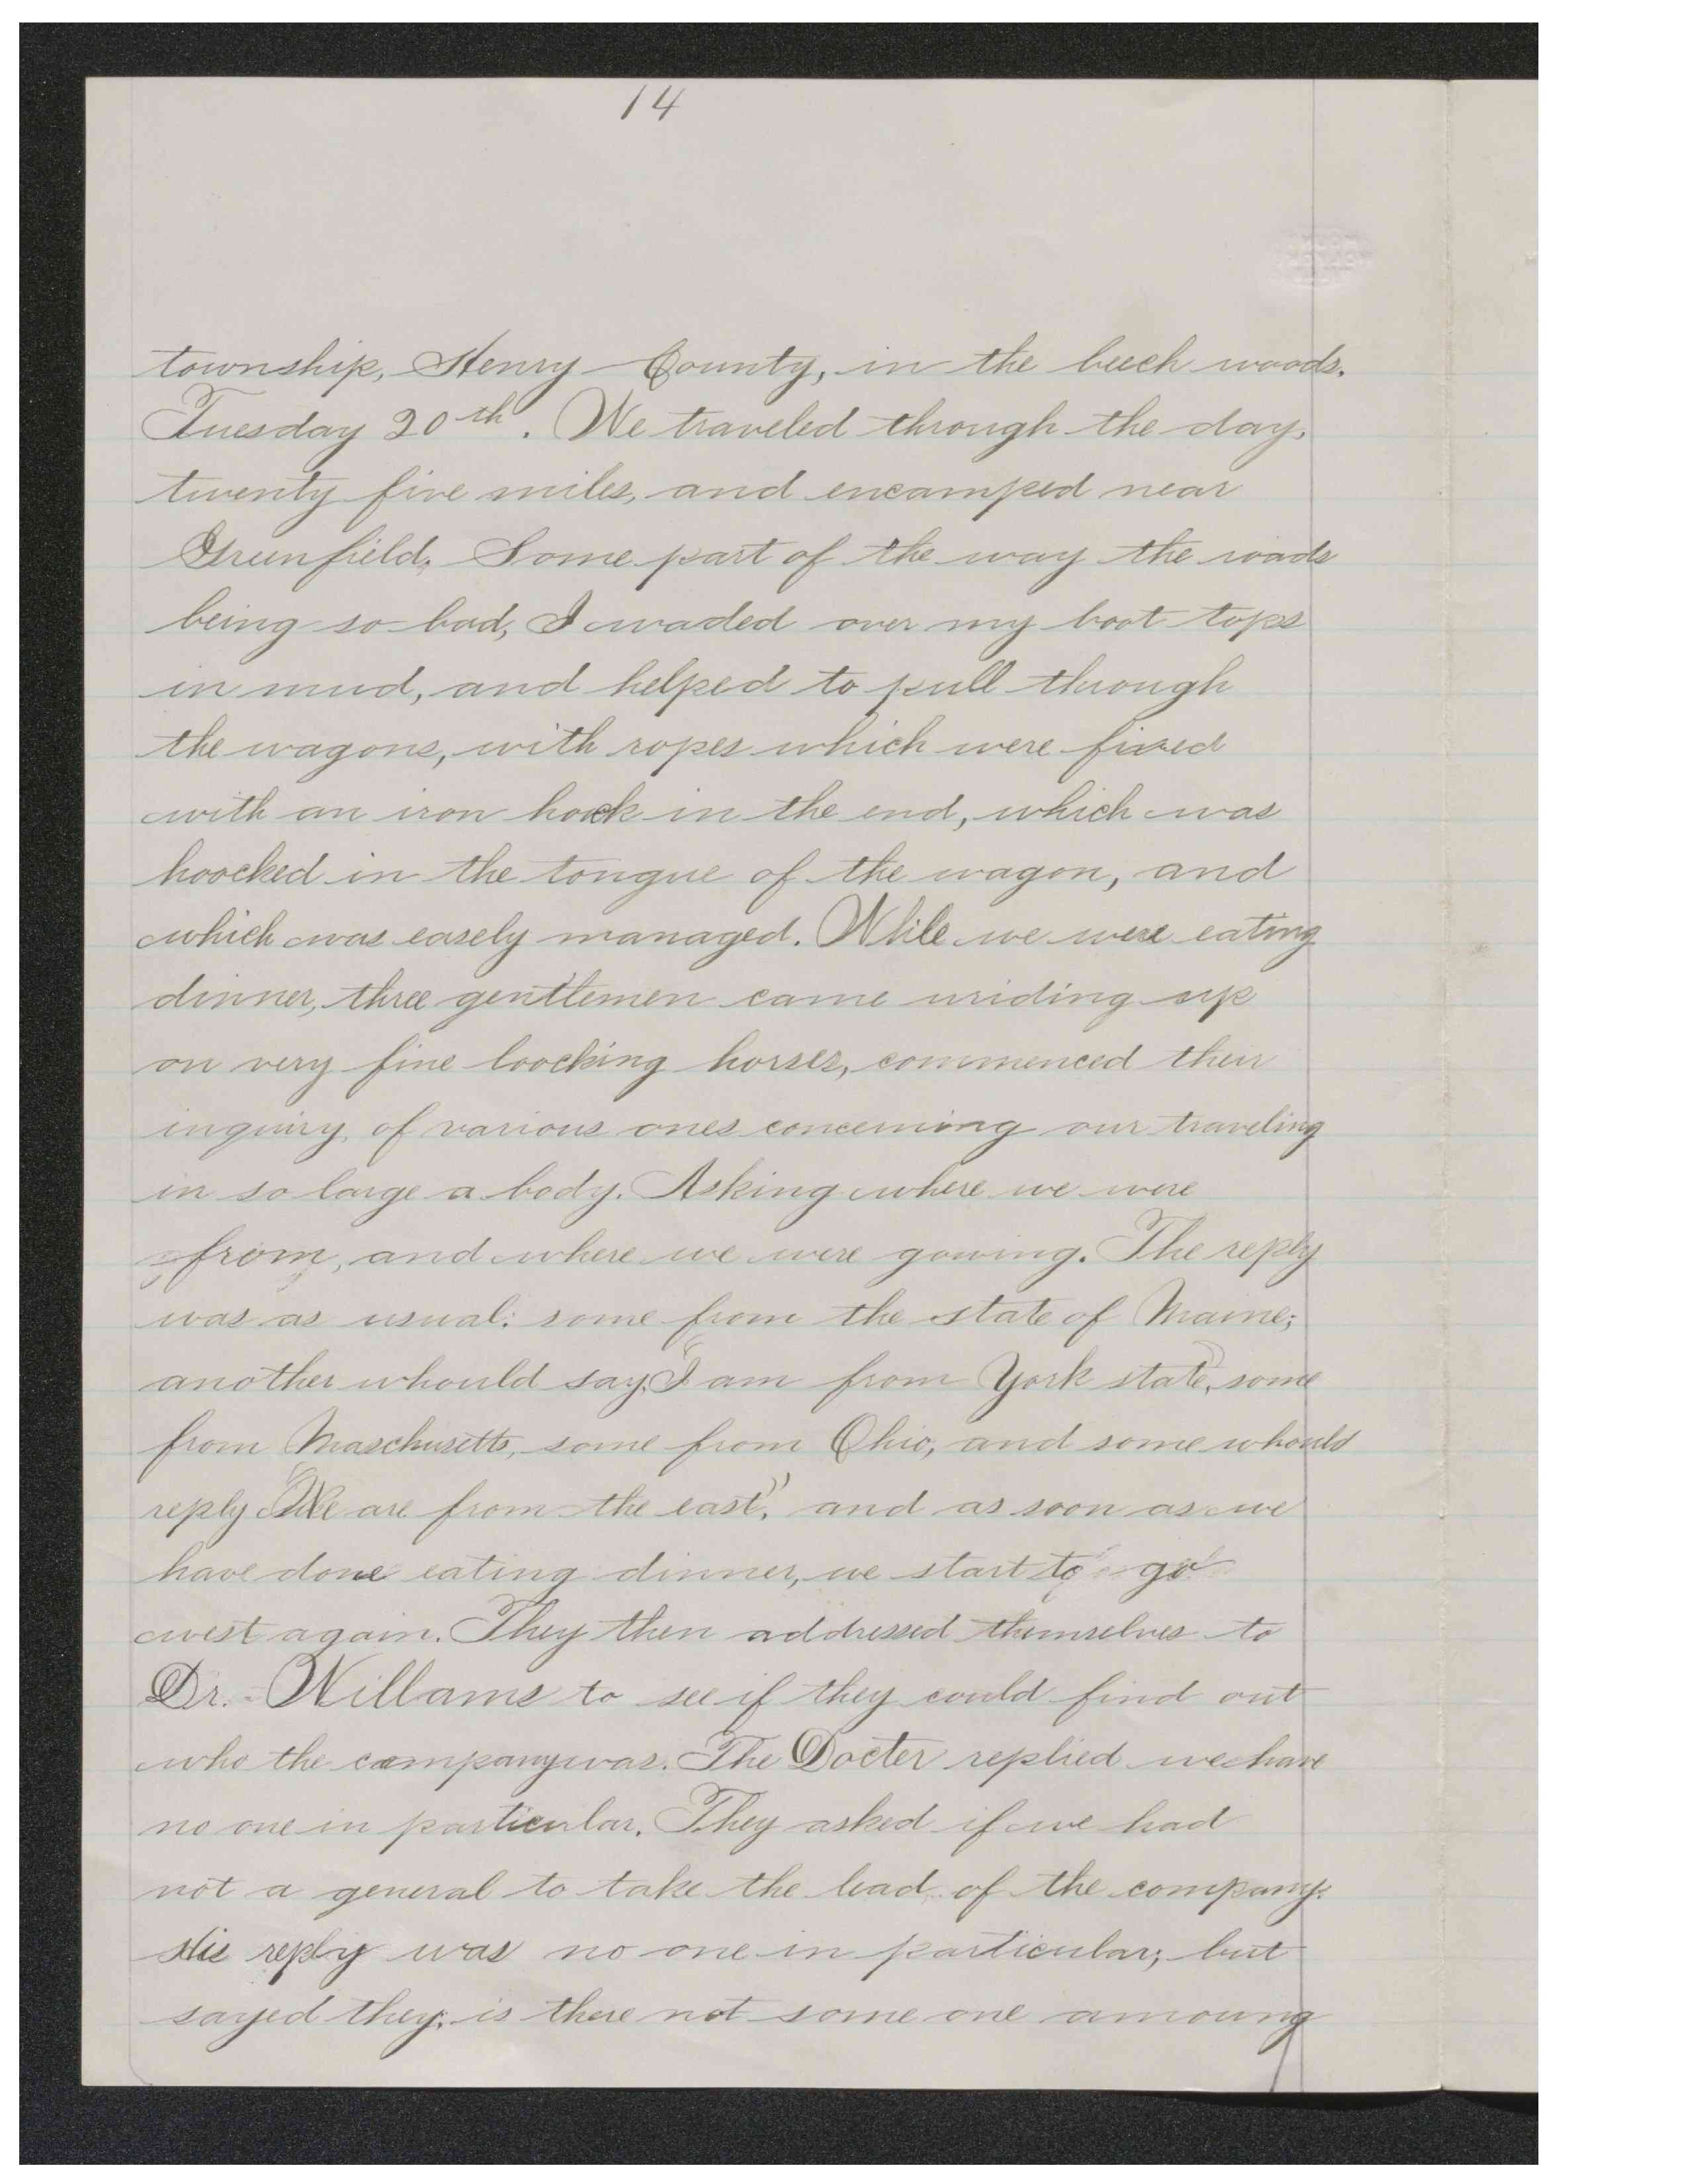 14
township, Henry County, in the beech woods.
Tuesday 20th. We traveled through the day,
twenty five miles, and encamped near
Greenfield, Some part of the way the roads
being so bad, I waded over my boot tops
in mud, and helped to pull through
the wagons, with ropes which were fixed
with an iron hock in the end, which was
hoocked in the tongue of the wagon, and
which was easely managed. While we were eating
dinner, three gentlemen came uriding up
on very fine loocking horses, commenced their
inquiry, of various ones concerning our traveling
in so large a body. Asking where we were
from, and where we were gowing. The reply
was as usual: some from the state of Maine;
another whould say, "I am from York state", some
from Maschusetts, some from Ohio, and some whould
reply "We are from the east", and as soon as we
have done eating dinner, we start to go
west again. They then addressed themselves to
Dr. Willams to see if they could find out
who the company was. The Docter replied we have
no one in particular. They asked if we had
not a general to take the lead of the company.
His reply was no one in particular; but
sayed they, is there not some one amoung